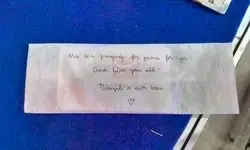 We are praying for peace for you
God bless you all!
Brazil is with you